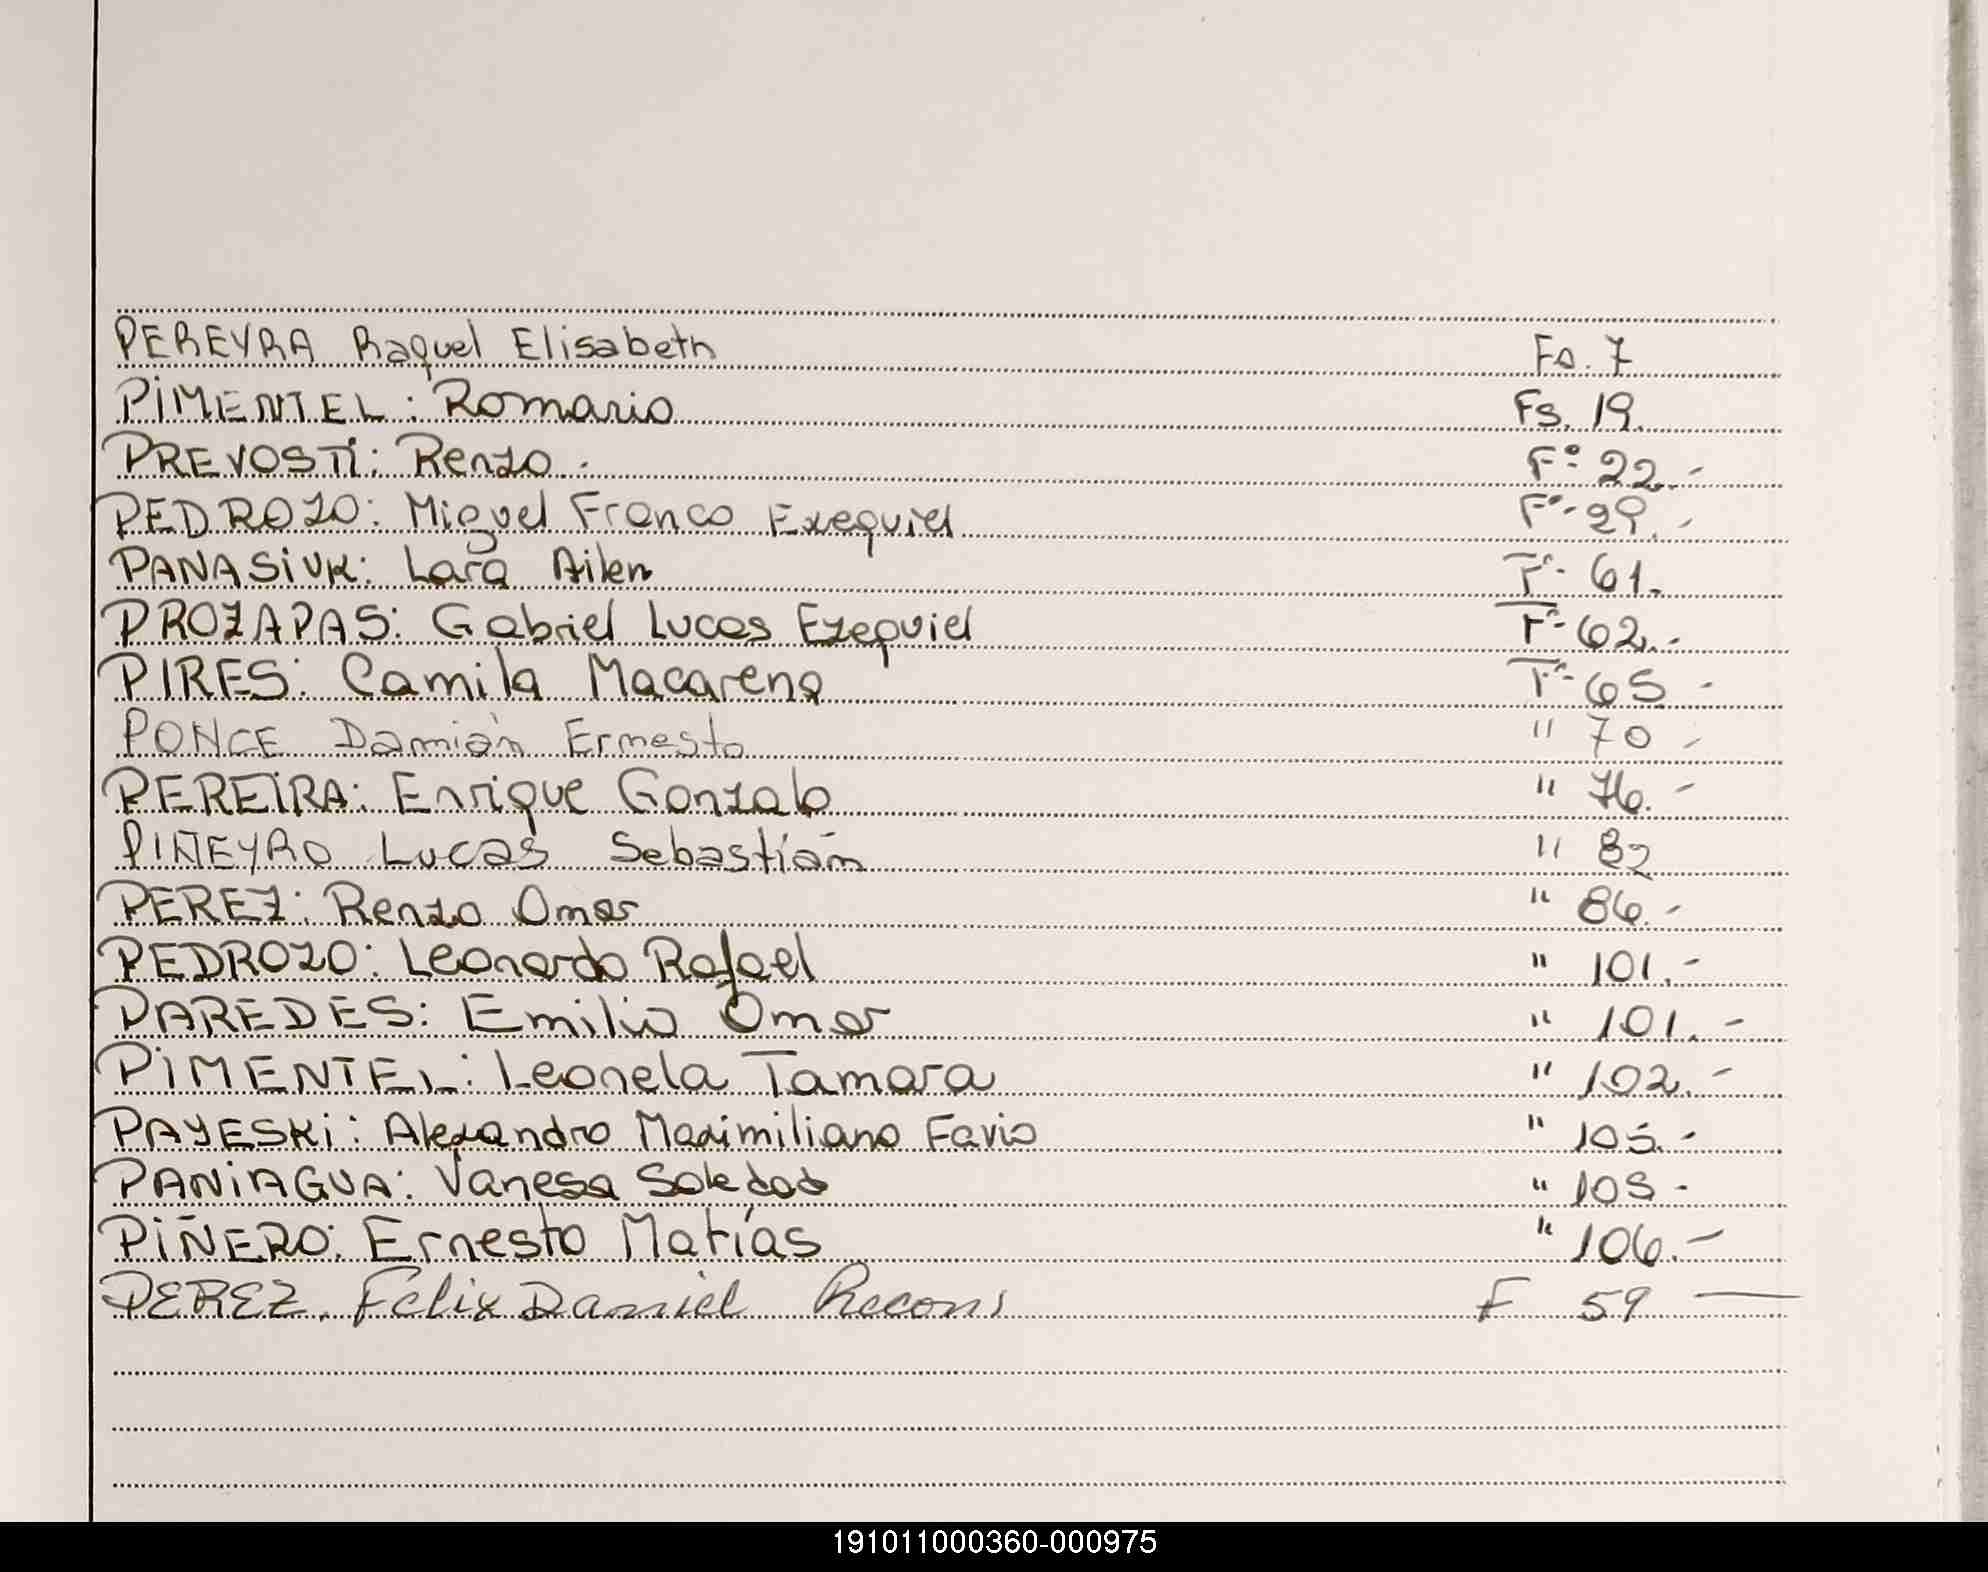 PEREYRA Raquel Elisabeth Fs. 7
PIMENTEL: Romario Fs. 19.
PREVOSTI: Renzo. Fº 22.-
PEDROZO: Miguel Franco Exequiel Fº- 29.-
PANASIUK: Lara Ailen Fº- 61.
PROZAPAS: Gabriel Lucas Ezequiel Fº- 62.-
PIRES: Camila Macarena Fº- 65 -
PONCE Damián Ernesto " 70 -
PEREIRA: Enrique Gonzalo " 76.-
PIÑEYRO Lucas Sebastián " 82
PEREZ: Renzo Omar " 86.-
PEDROZO: Leonardo Rafael " 101.-
PAREDES: Emilio Omar " 101.-
PIMENTEL: Leonela Tamara " 102.-
PAYESKI: Alexandro Maximiliano Favio " 105.-
PANIAGUA: Vanesa Soledad " 105 -
PIÑERO: Ernesto Matías " 106.-
PEREZ, Felix Daniel Recons F 59 —
191011000360-000975